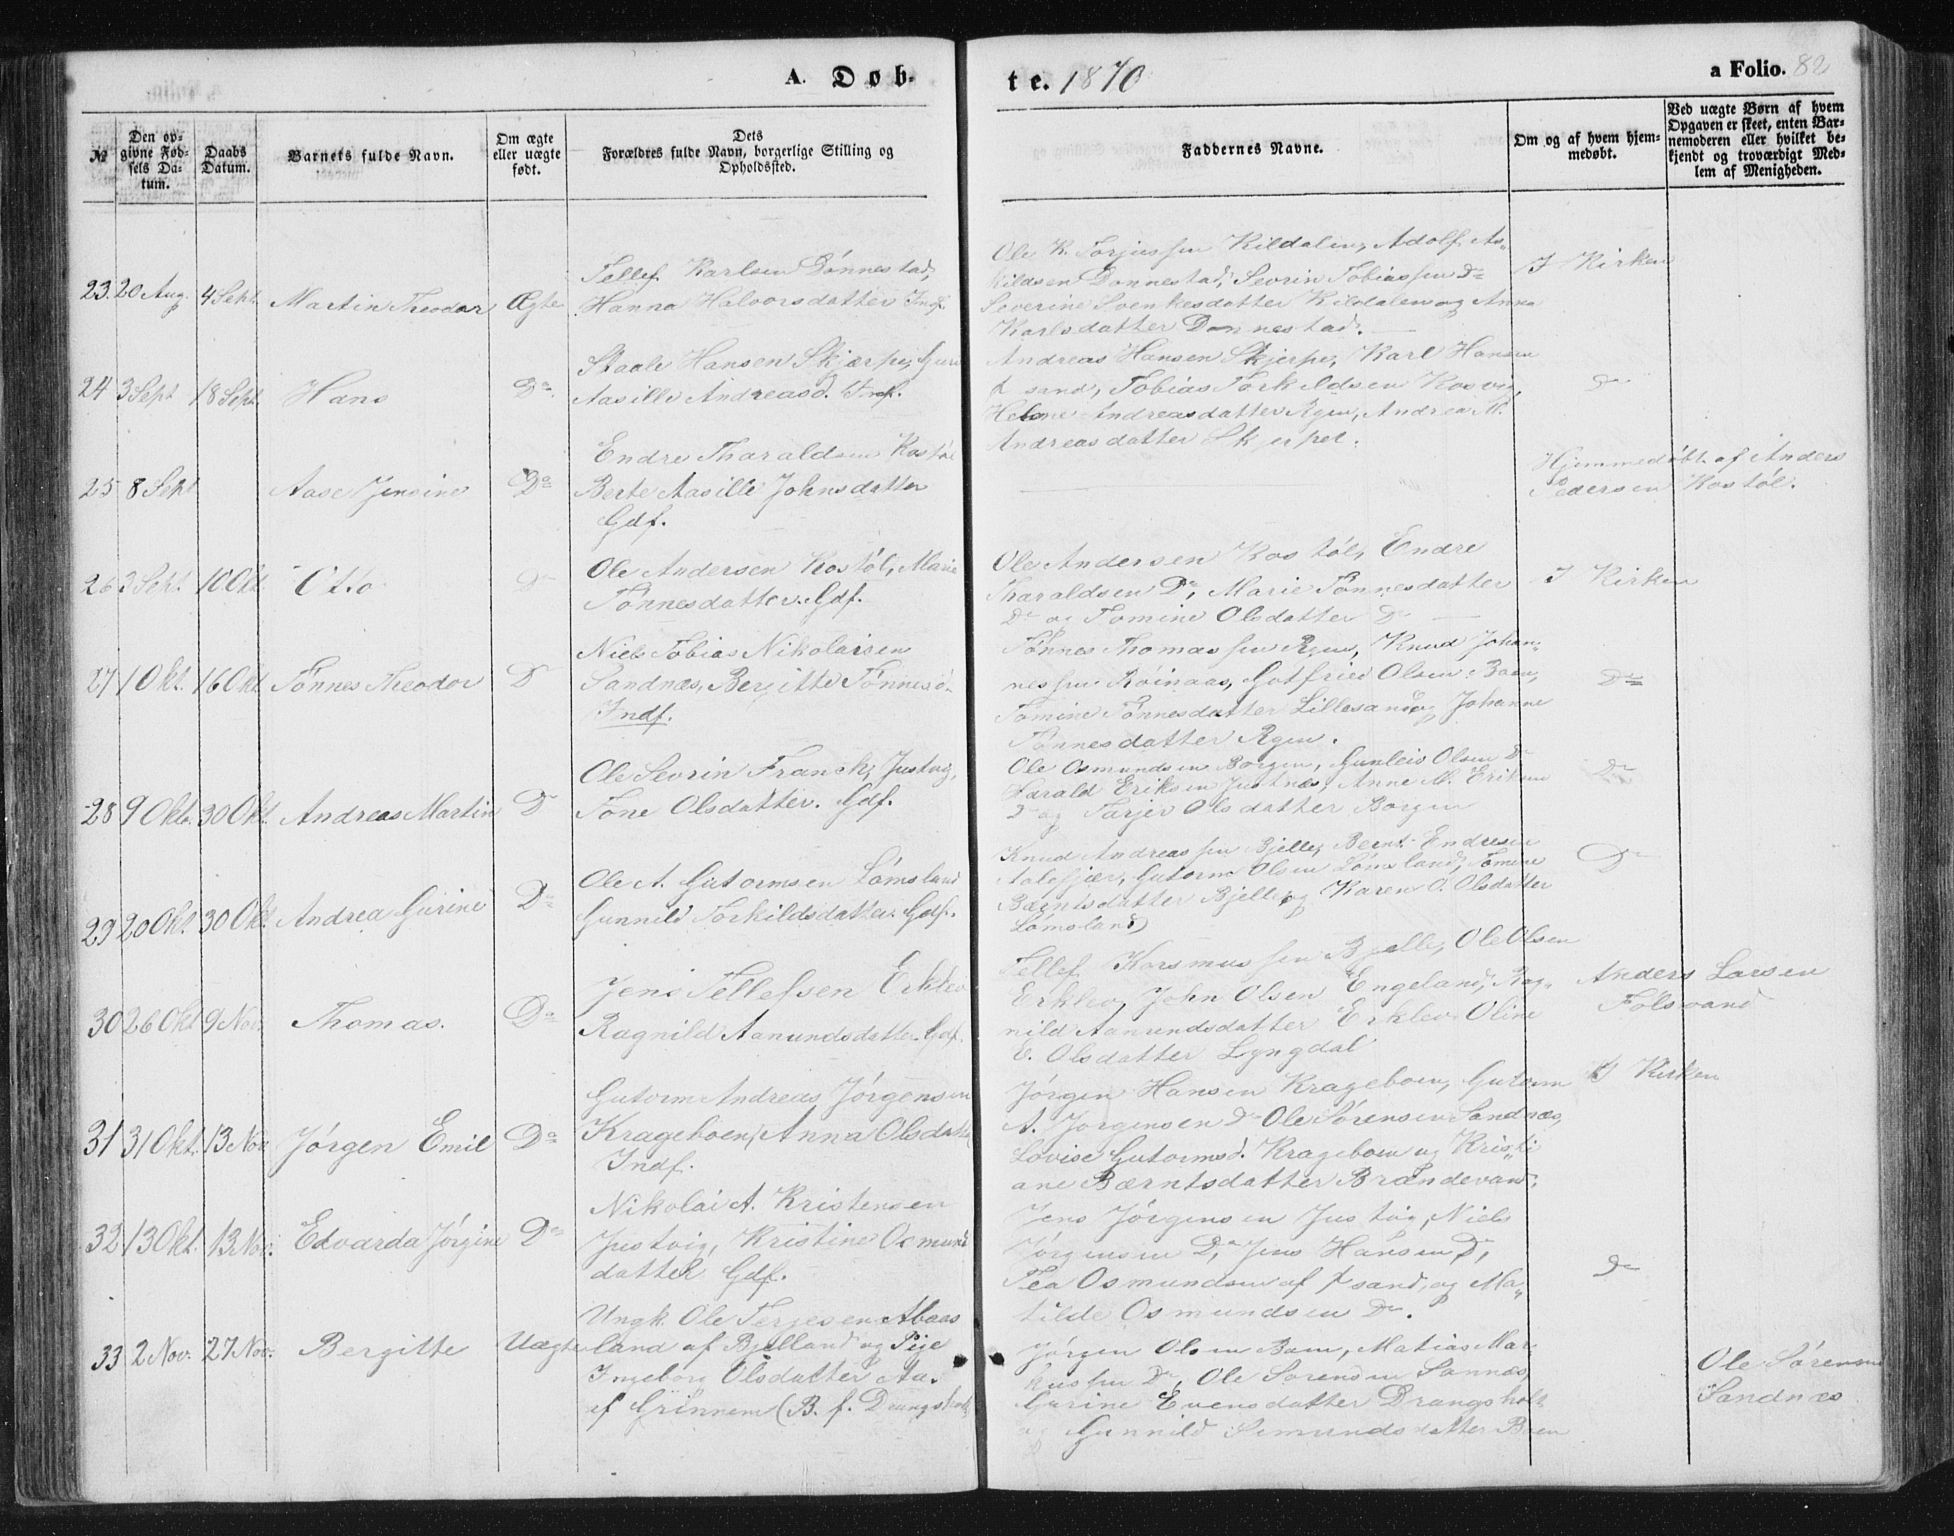 A. Døb-
te. 1870
a Folio. 82
No
Den op-
givne Fød-
sels Da-
tum.
Daabs
Datum.
Barnets fulde Navn.
Om ægte
eller uægte
født.
Dets
Forældres fulde Navn, borgerlige Stilling og
Opholdssted.
Faddernes Navne.
Om og af hvem hjem-
medøbt.
Ved uægte Børn af hvem
Opgaven er skeet, enten Bar-
nemoderen eller hvilket be-
kjendt og troværdigt Med-
lem af Menigheden.
23. 20 Aug. 4 Sept. Martin Theodor Ægte
Tellef Karlsen Dønnestad,
Hanna Halvorsdatter Indf.
Ole K. Torjussen Kildalen, Adolf As-
kildsen Donnestad, Sevrin Tobiassen Do
Severine Svenkesdatter Kildalen og Anna
Karlsdatter Donnestad.
I Kirken
24 3 Sept 18 Sept. Hans Do
Staale Hansen Skjærpe, Guri
Aasille Andreasd. Indf.
Andreas Hansen Skjerpe, Karl Hansen
sand, Tobias Torkildsen Kosvig,
Helene Andreasdatter Rgen, Andrea M.
Andreasdatter Skjerpet.
Do
25 8 Sept Aase Jensine Do
Endre Tharaldsen Kostøl
Berte Aasille Johnsdatter
Gdf.
Hjemmedøbt af Anders
Pedersen Kostøl.
26 3 Sept. 10 Okt Otto Do
Ole Andersen Kostøl, Marie
Tønnesdatter. Gdf.
Ole Andersen Kostøl, Endre
Tharaldsen Do, Marie Tønnesdatter
Do og Tomine Olsdatter Do
I Kirken
27 1 Okt. 16 Okt Tønnes Theodor Do
Niels Tobias Nikolaisen
Sandnæs, Bergitte Tønnesd.
Indf.
Tønnes Thomassen Rgen, Knud Johan-
nessen Røinaas, Gotfried Olsen Boen,
Tomine Tønnesdatter Lillesand og Johanne
Tønnesdatter Rgen.
Do
28 9 Okt. 30 Okt. Andreas Martin Do
Ole Sevrin Franck, Justvig,
Tone Olsdatter. Gdf.
Ole Osmundsen Borgen, Gunleiv Olsen Do
Harald Eriksen Justnæs, Anne M. Eriksen
Do og Tarjer Olsdatter Borgen
Do
29 20 Okt. 30 Okt. Andrea Gurine Do
Ole A. Gutormsen Lømsland
Gunnild Torkildsdatter. Gdf.
Knud Andreassen Bjelle, Beent Endresen
Aalefjær, Gutorm Olsen Lømsland, Tomine
Bærntsdatter Bjelle og Karen O. Olsdatter
Lømsland
Do
30 26 Okt 9 Nov. Thomas. Do
Jens Tellefsen Erklev
Ragnild Aanundsdatter. Gdf.
Tellef Korsmussen Bjelle, Ole Olsen
Erklev, John Olsen Engeland, Rag-
nild Aanundsdatter Erklev Oline
E. Olsdatter Lyngdal
Anders Larsen
Folsvand
31 31 Okt. 13 Nov Jørgen Emil Do
Gutorm Andreas Jørgensen
Krageboen, Anna Olsdatt
Indf.
Jørgen Hansen Krageboen, Gutorm
A. Jørgensen Do Ole Sørensen Sandnæs,
Lovise Gutormsd. Krageboen og Kristi
ane Bærntsdatter Brændevand.
I Kirken
32 13 Okt. 13 Nov. Edvarda Jørgine Do
Nikolai A. Kristensen
Justvig, Kristine Osmund
datter Gdf.
Jens Jørgensen Justvig, Niels
Jørgensen Do, Jens Hansen Do,
Tea Osmundsen af sand, og Ma-
tilde Osmundsen Do.
Do
33 2 Nov. 27 Nov. Bergitte Uægte
Ungk. Ole Terjesen Abaas
land af Bjelland og Pige
Ingeborg Olsdatter Aa.
af Grinnem (B. f. Drangsholt)
Jørgen Olsen Boen, Matias Mar
kussen Do, Ole Sørensen Sannæs,
Gurine Evensdatter Drangsholt
og Gunnild Semundsdatter Boen
Ole Sørensen
Sandnæs